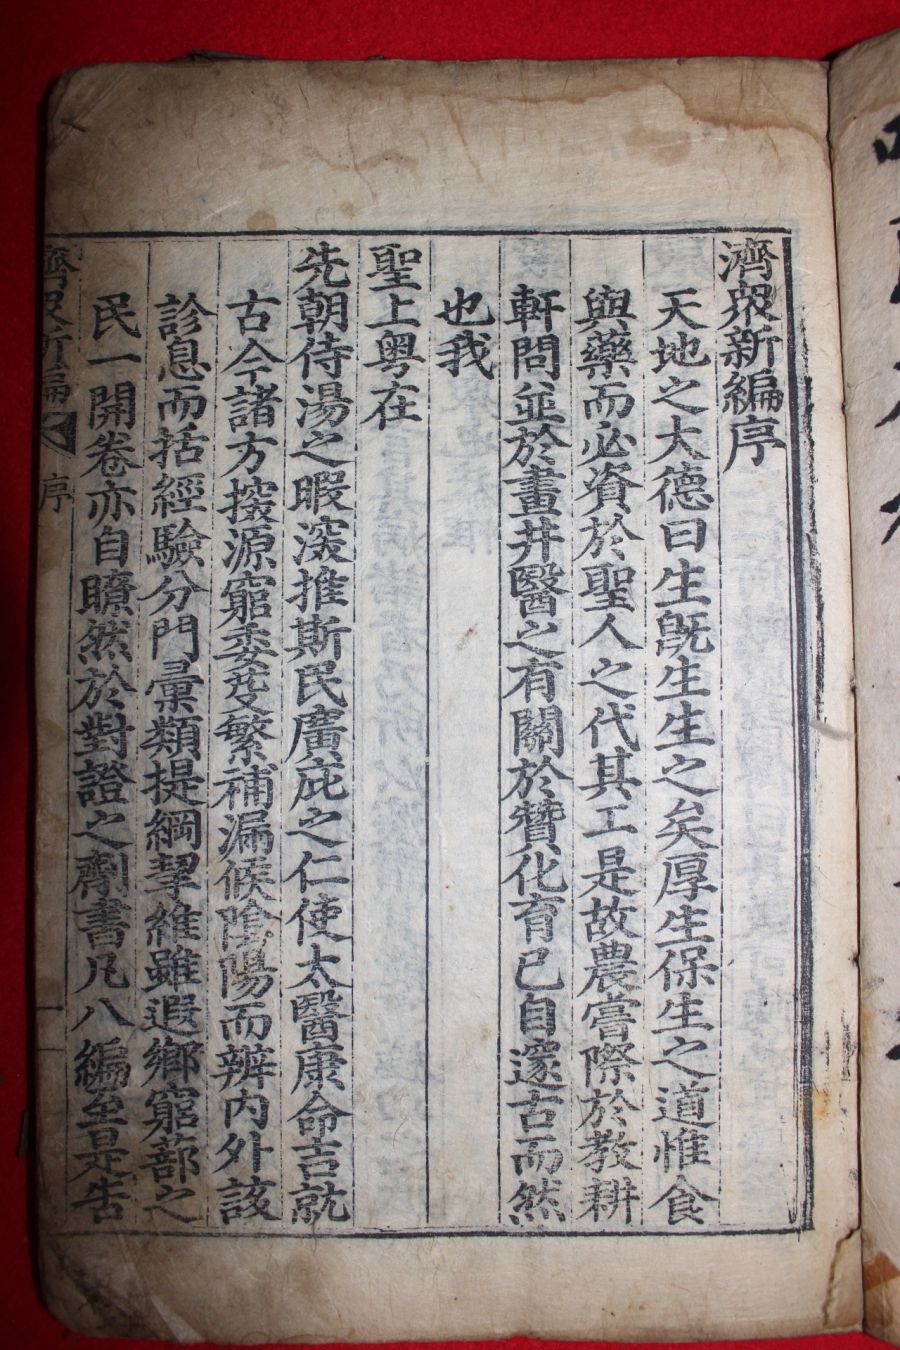 濟衆新編序
天地之大德曰生旣生生之矣厚生保生之道惟食
與藥而必資於聖人之代其工是故農嘗際於敎耕
軒問並於畫井醫之有關於贊化育已自邃古而然
也我
聖上粤在
先朝侍湯之暇深推斯民廣庇之仁使太醫康命吉就
古今諸方探源窮委芟繁補漏候陰陽而辨內外該
診息而括經驗分門彙類提綱挈維雖遐鄕窮蔀之
民一開卷亦自瞭然於對證之劑書凡八編至是告
濟衆新編 序 一